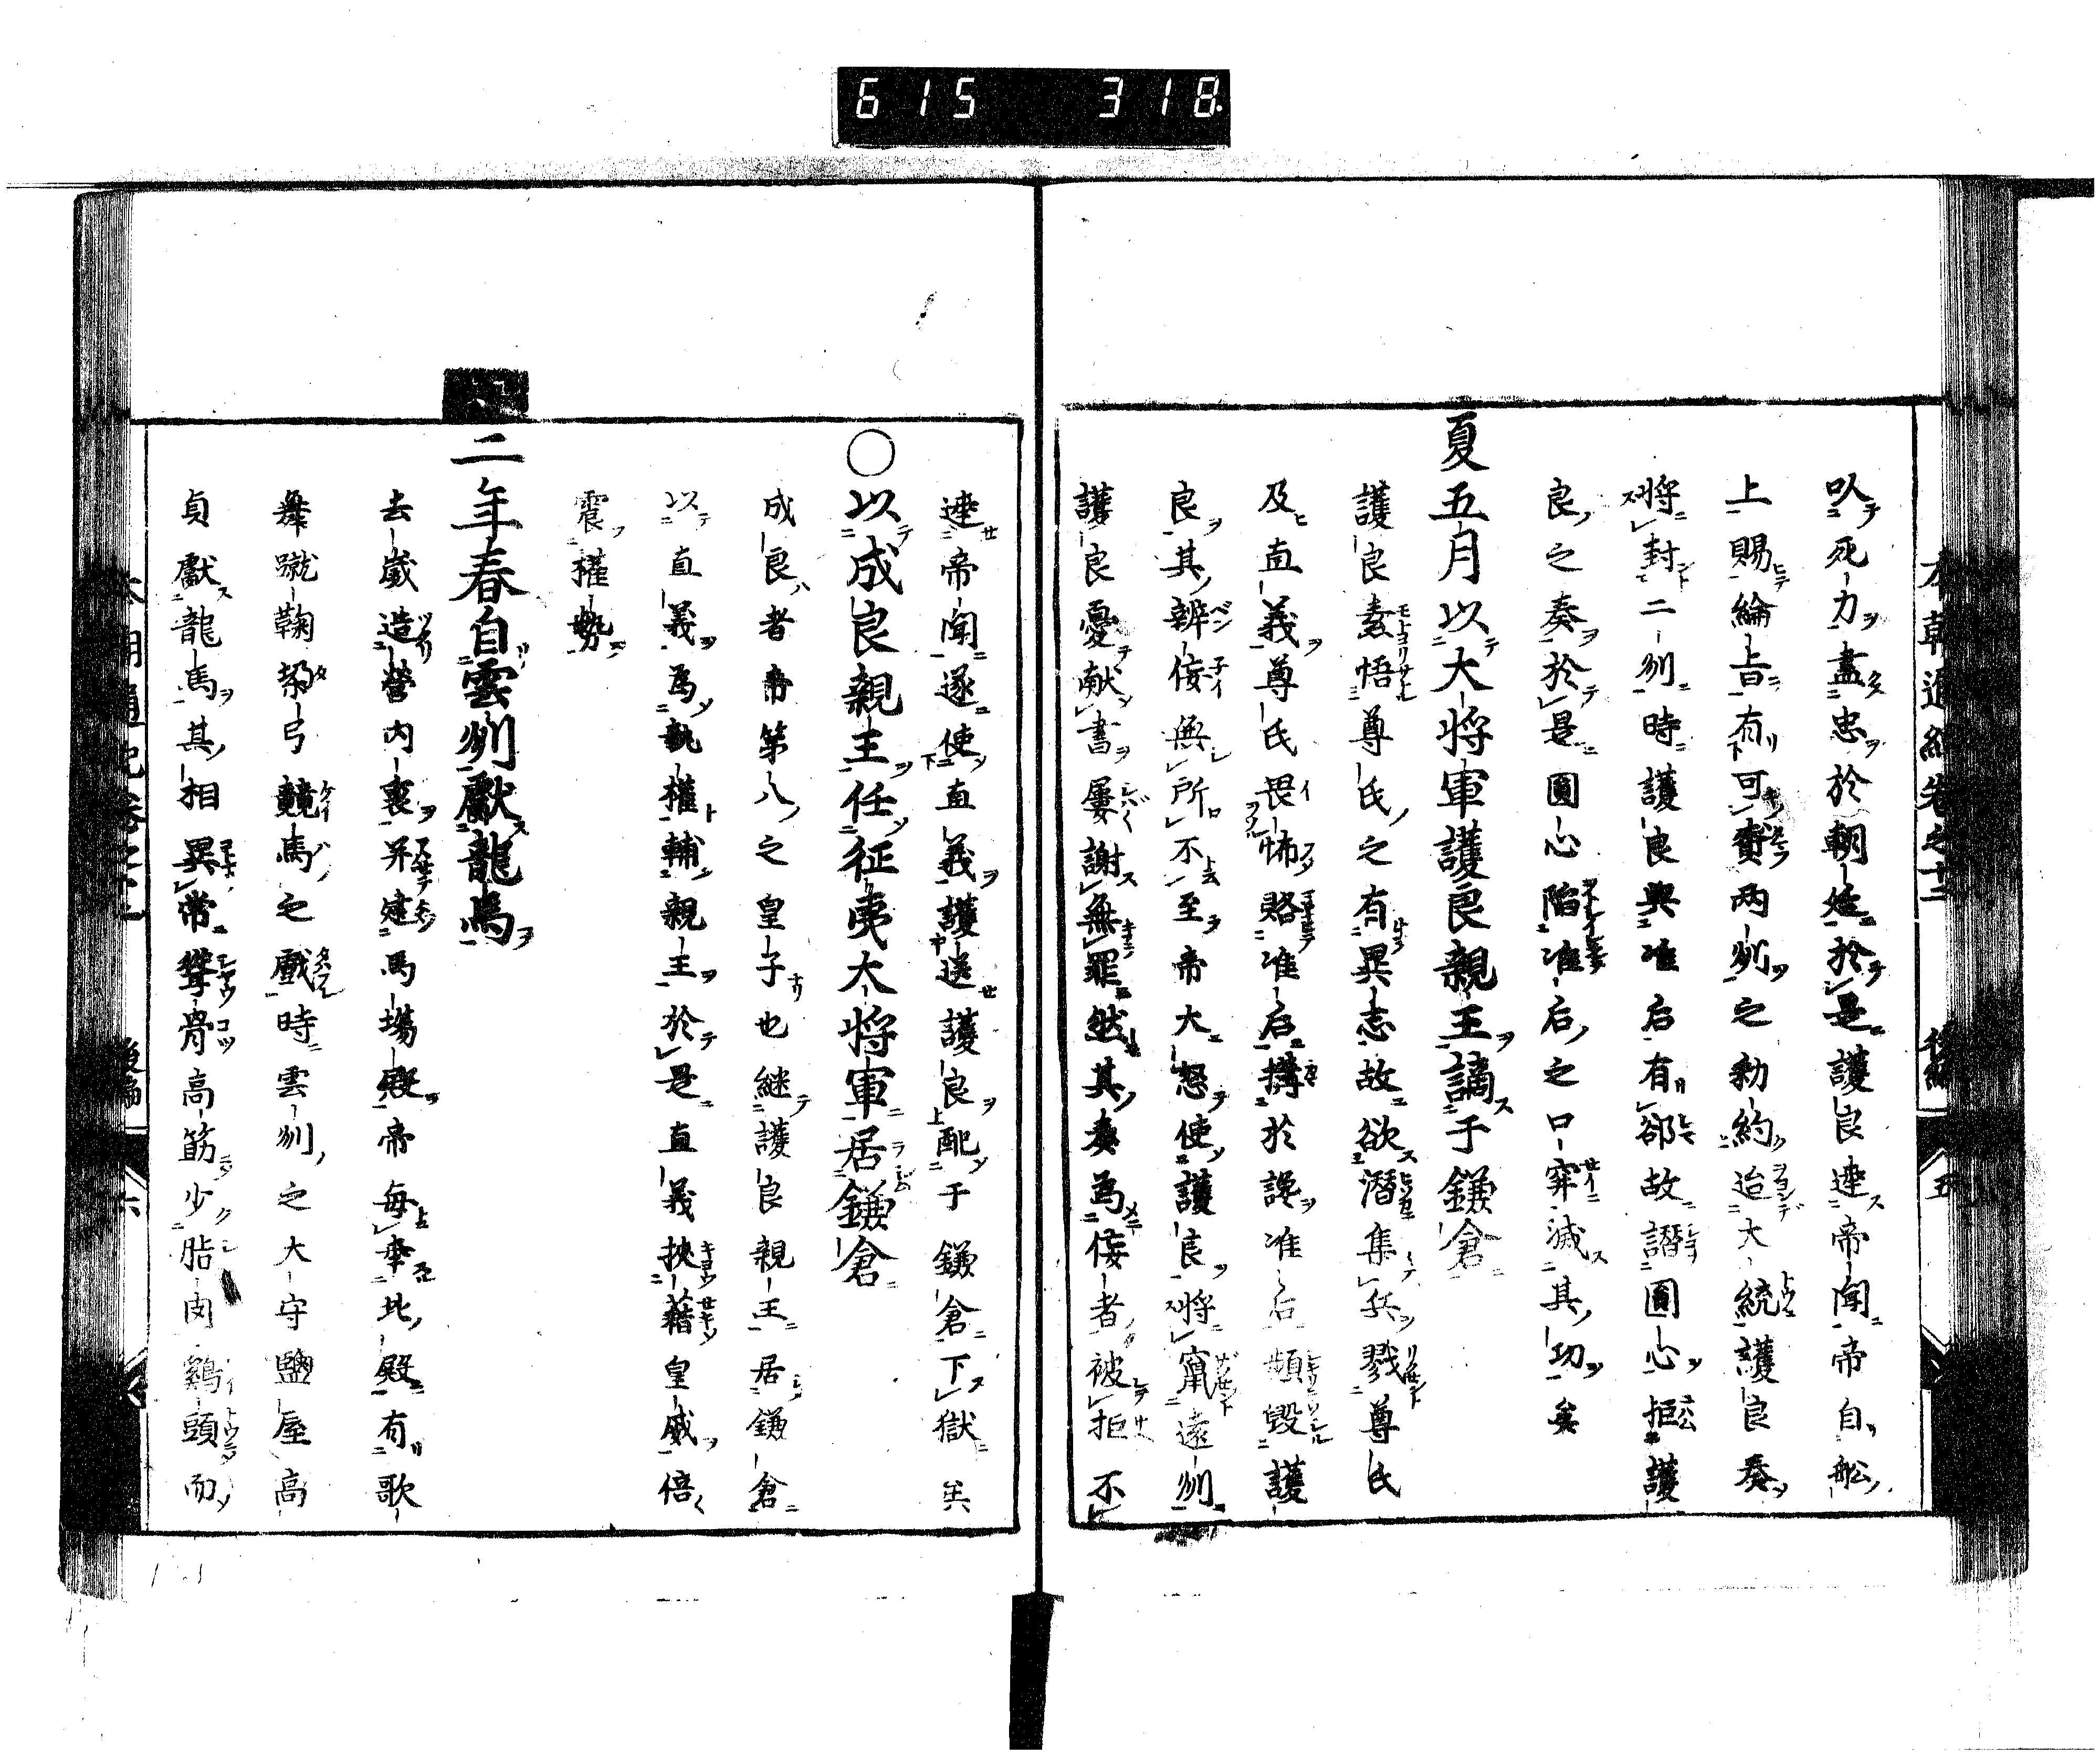 615 318
以死力盡忠於朝廷於是護良達帝聞帝自舩
上賜綸旨有可賚両州之勅約迨大統護良奏
将封二州時護良與准后有郤故譖圓心拒護
良之奏於是圓心陥准后之口穽滅其功矣
夏五月以大将軍護良親王謫于鎌倉
護良素悟尊氏之有異志故欲潛集兵戮尊氏
及直義尊氏畏怖賂准后搆於讒准后頻毀護
良其辨侫無所不至帝大怒使護良将竄遠州
護良憂献書屢謝無罪然其奏為侫者被拒不
達帝聞遂使直義護送護良配于鎌倉下獄矣
〇以成良親王任征夷大将軍居鎌倉
成良者帝第八之皇子也継護良親王居鎌倉
以直義為執權輔親王於是直義挾藉皇威倍
震權勢
二年春自雲州獻龍馬
去歲造營内裏并建馬場殿帝毎幸此殿有歌
舞蹴鞠弓競馬之戲時雲州之大守鹽屋高
貞獻龍馬其相異常聳骨高筋少脂肉鷄頭而
本朝通紀卷之十二 後編 五
本朝通紀卷之十二 後編 六